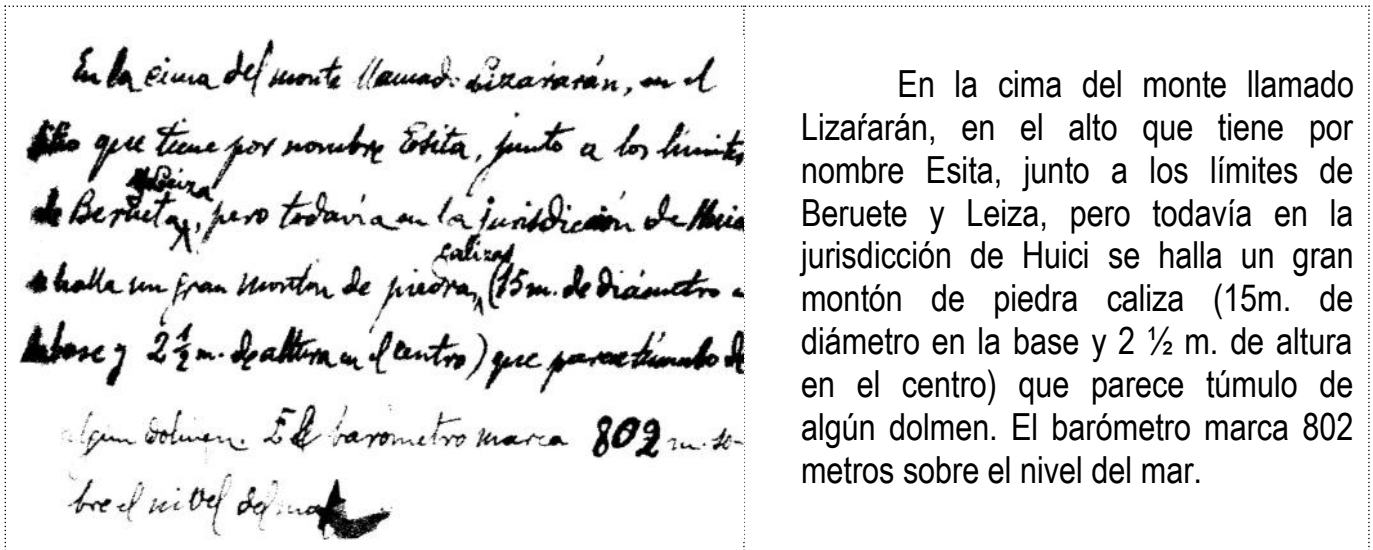 En la cima del monte llamado Lizaŕarán, en el
que tiene por nombre Esita, junto a los límites
y Leiza
de Berueta, pero todavía en la jurisdicción de Huici
caliza
se halla un gran montón de piedra, (15 m. de diámetro
la base y 2 ½ m. de altura en el centro) que parece túmulo de
algún dolmen. El barómetro marca 802 m. so-
bre el nivel del mar
En la cima del monte llamado
Lizaŕarán, en el alto que tiene por
nombre Esita, junto a los límites de
Beruete y Leiza, pero todavía en la
jurisdicción de Huici se halla un gran
montón de piedra caliza (15m. de
diámetro en la base y 2 ½ m. de altura
en el centro) que parece túmulo de
algún dolmen. El barómetro marca 802
metros sobre el nivel del mar.